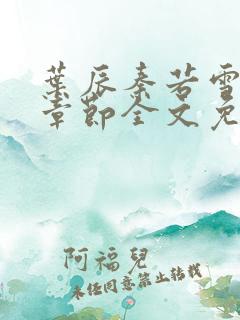 葉辰秦若雪
章節全文免
阿福兒
未经同意禁止转载